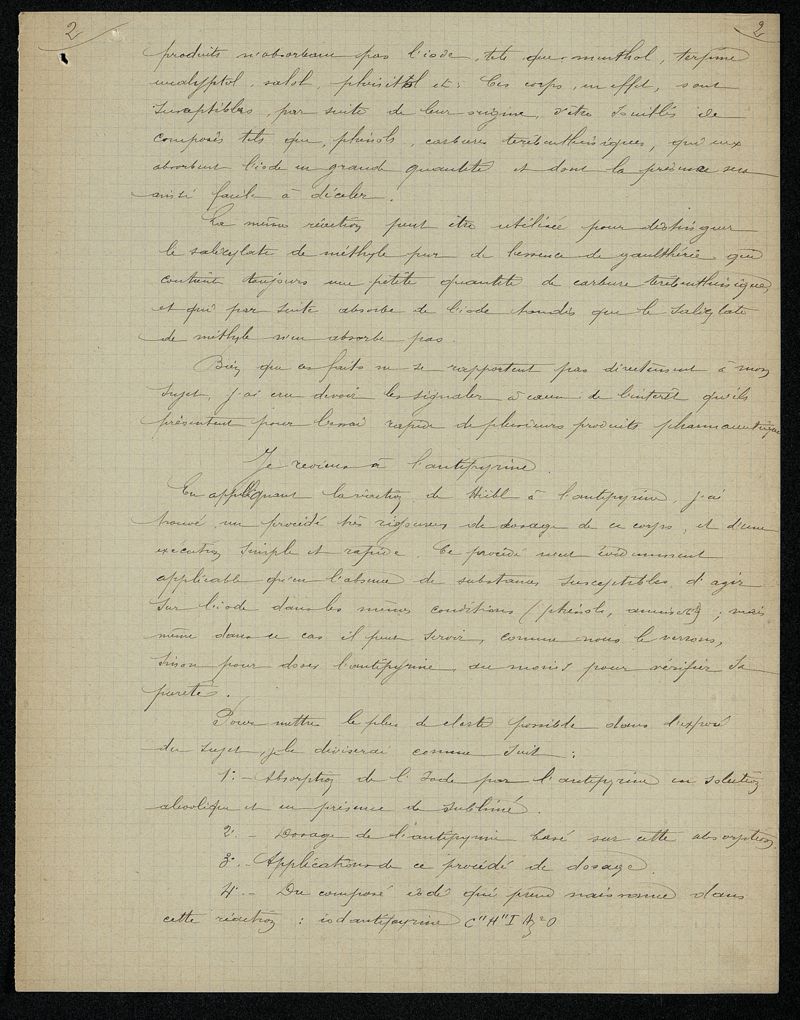 2 2
produits n'absorbant pas l'iode, tels que menthol, terpine
eucalyptol, salol, etc. Ces corps, en effet, sont
susceptibles, par suite de leur origine, d'être souillés de
composés tels que, phénols, carbures terébenthéniques, qui eux
absorbent l'iode en grande quantité et dont la présence sera
ainsi facile à déceler.
La même réaction peut être utilisée pour distinguer
le salicylate de méthyle pur de l'essence de gaulthérie qui
contient toujours une petite quantité de carbure terébenthénique,
et qui par suite absorbe de l'iode tandis que le salicylate
de méthyle n'en absorbe pas.
Bien que ces faits ne se rapportent pas directement à mon
sujet, j'ai cru devoir les signaler à cause de l'intérêt qu'ils
présentent pour l'essai rapide de plusieurs produits pharmaceutiques
Je reviens à l'antipyrine.
En appliquant la réaction de Hübl à l'antipyrine, j'ai
trouvé un procédé très rigoureux de dosage de ce corps, et d'une
exécution simple et rapide. Ce procédé n'est évidemment
applicable qu'en l'absence de substances susceptibles d'agir
sur l'iode dans les mêmes conditions (phénols, amines etc) ; mais
même dans ce cas il peut servir, comme nous le verrons,
sinon pour doser l'antipyrine, au moins pour vérifier sa
pureté.
Pour mettre le plus de clarté possible dans l'exposé
du sujet, je le diviserai comme suit :
1º - Absorption de l'Iode par l'antipyrine en solution
alcoolique et en présence de sublimé.
2º - Dosage de l'antipyrine basé sur cette absorption.
3º - Applications de ce procédé de dosage.
4º - Du composé iodé qui prend naissance dans
cette réaction : iodantipyrine C"H"I Az²O